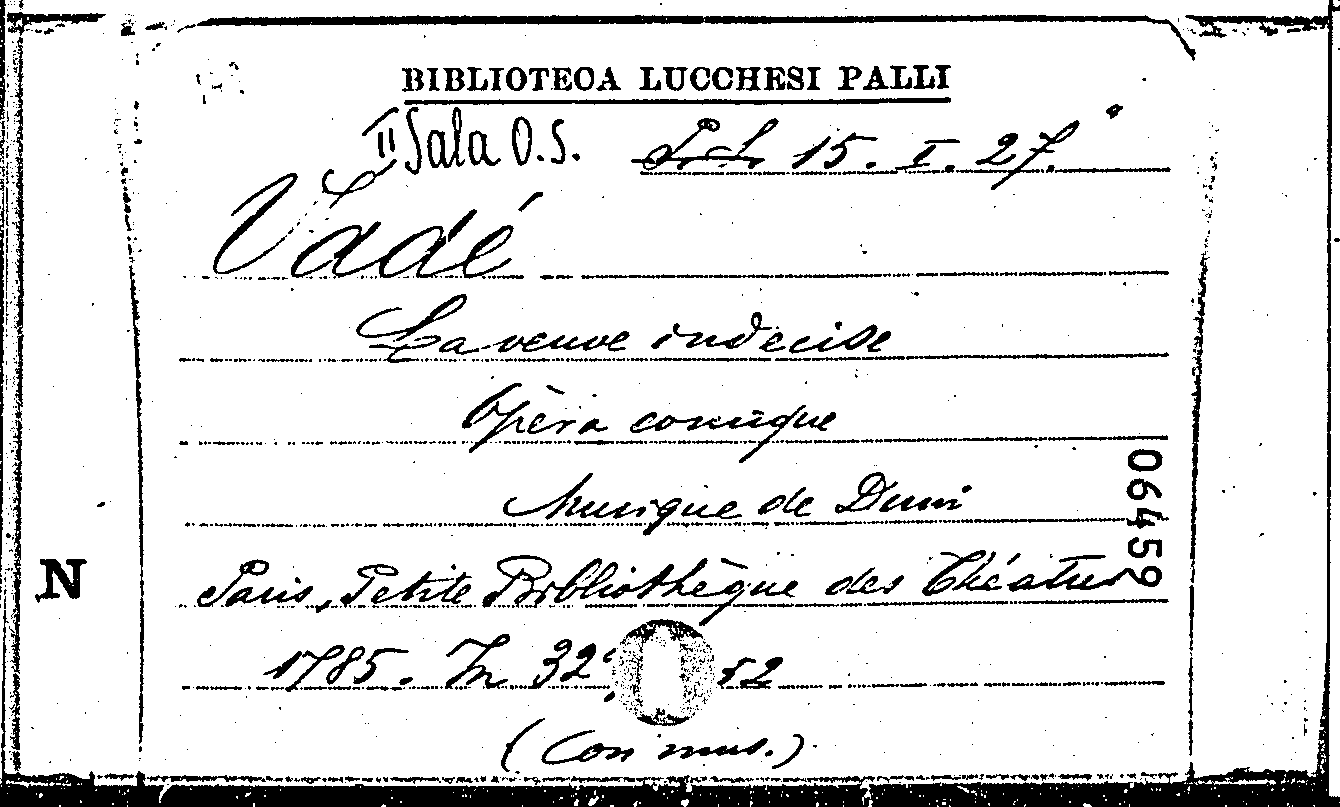 BIBLIOTECA LUCCHESI PALLI
II Sala O.S. 15. I. 27.
Vadé
La veuve indecise
Opèra comique
Musique de Duni
Paris, Petite Bibliothèque des Théatres
1785. In 32° 52
(Con mus.)
06459
N